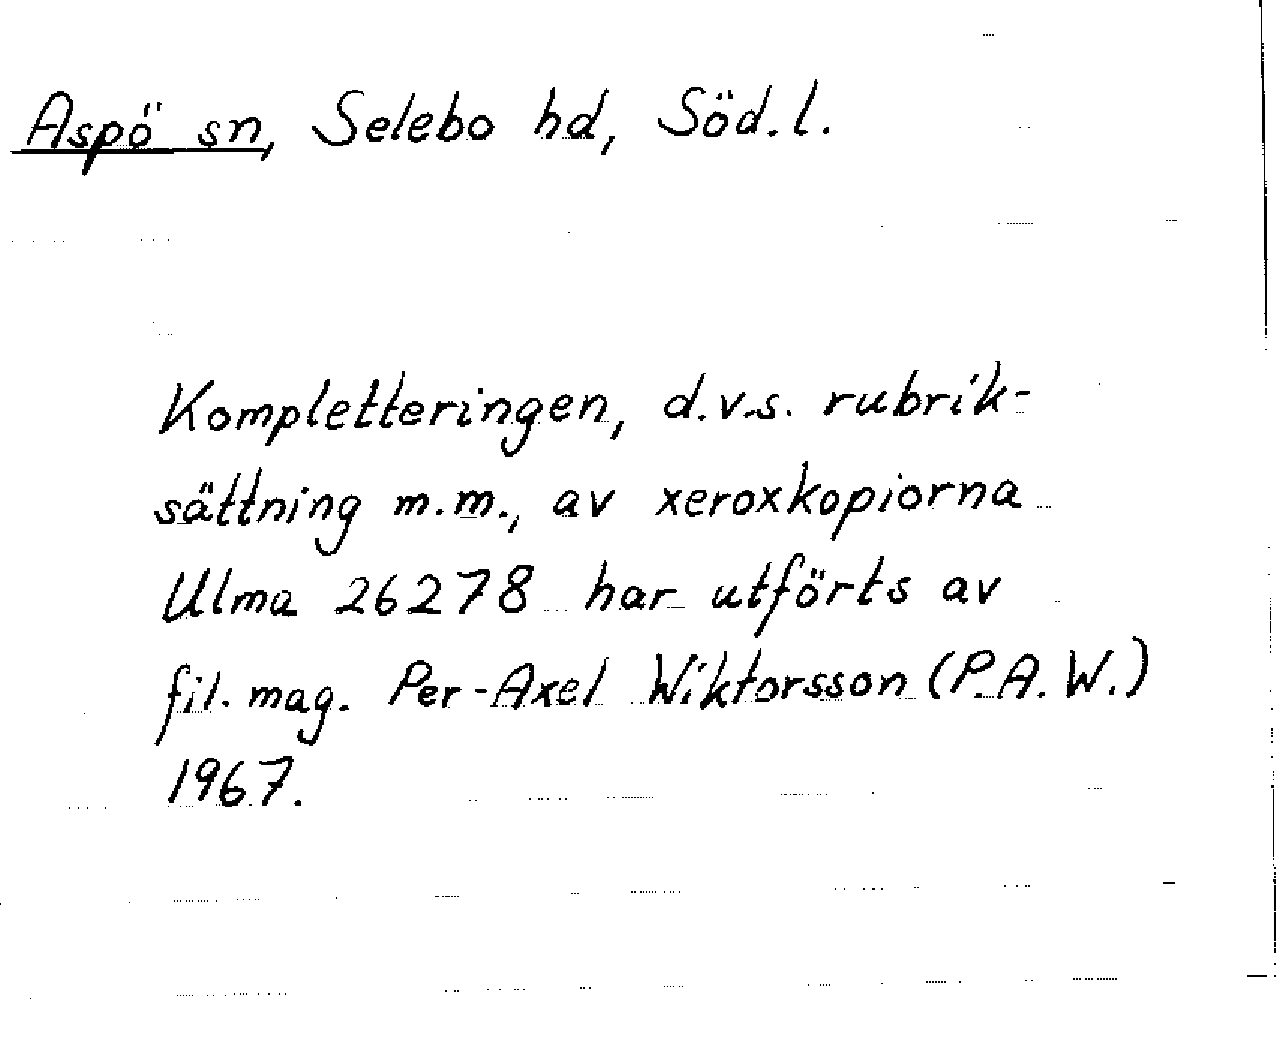 Aspö sn, Selebo hd, Söd.l.
Kompletteringen, d.v.s. rubrik-
sättning m.m., av xeroxkopiorna
Ulma 26278 har utförts av
fil. mag. Per-Axel Wiktorsson (P.A.W.)
1967.